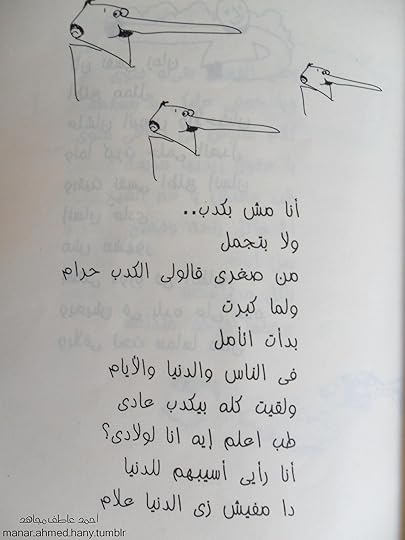 أنا مش بكدب..
ولا بتجمل
من صغرى قالولى الكدب حرام
ولما كبرت
بدأت اتأمل
فى الناس والدنيا والأيام
ولقيت كله بيكدب عادى
طب اعلم إيه انا لولادى؟
أنا رأيى أسيبهم للدنيا
دا مفيش زى الدنيا علام
احمد عاطف مجاهد
manar.ahmed.hany.tumblr